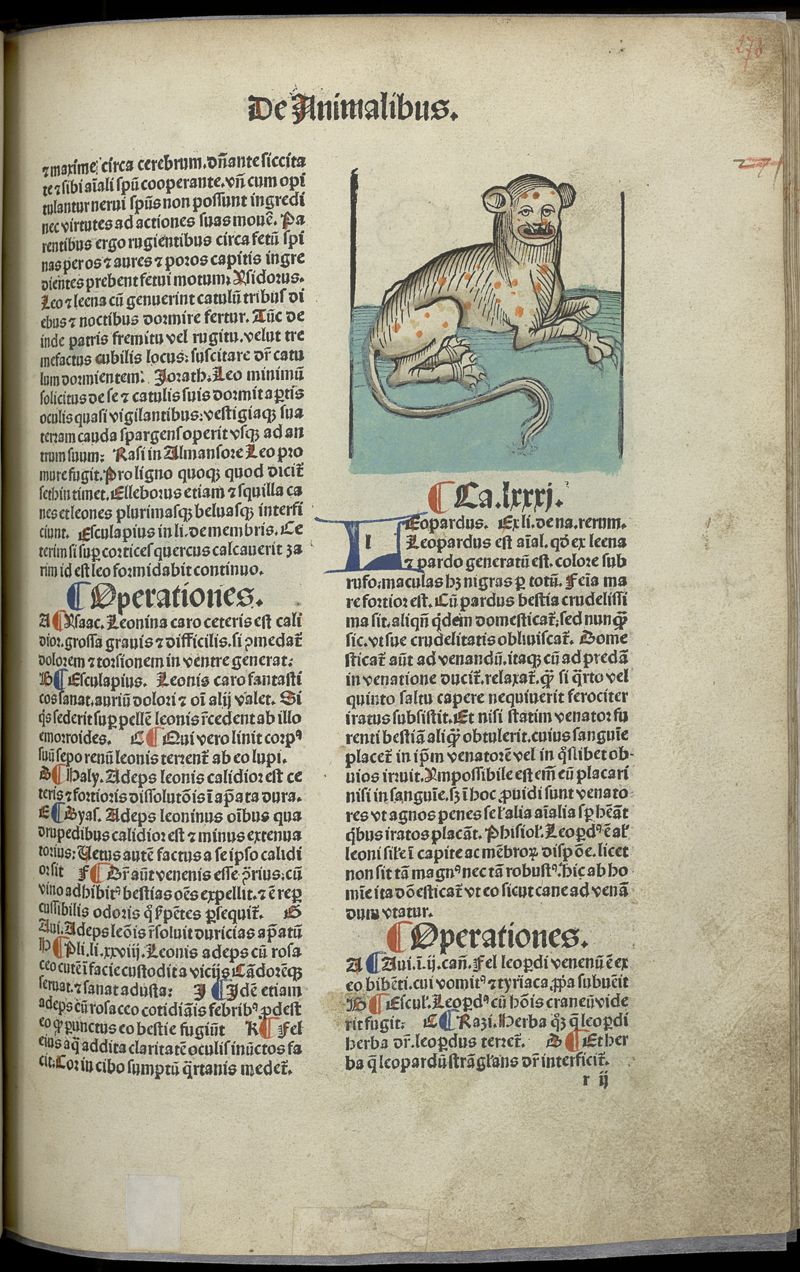 De Animalibus.
⁊ maxime circa cerebrum. dn̄ante siccita
te ⁊ sibi aīali spū cooperante. vn̄ cum opi
tulantur nerui spūs non possunt ingredi
nec virtutes ad actiones suas mouē. Pa
rentibus ergo rugientibus circa fetū spi
nas per os ⁊ aures ⁊ poros capitis ingre
dientes prebent fetui motum: Ysidorus.
Leo ⁊ leena cū genuerint catulū tribus di
ebus ⁊ noctibus dormire fertur. Tūc de
inde patris fremitu vel rugitu. velut tre
mefactus cubilis locus: suscitare dr̄ catu
lum dormientem: Jorath. Leo minimū
solicitus de se ⁊ catulis suis dormit aptis
oculis quasi vigilantibus: vestigiaqꝫ sua
terram cauda spargens operit vsqꝫ ad an
trum suum: Rasi in Almansore Leo pro
mure fugit. Pro ligno quoqꝫ quod dicit̄
sethin timet. Elleborus etiam ⁊ squilla ca
nes et leones plurimasqꝫ beluasqꝫ interfi
ciunt. Esculapius in li. de membris. Ce
terim si sup cortices quercus calcauerit za
rim id est leo formidabit continuo.
¶ Operationes.
A ¶ Ysaac. Leonina caro ceteris est cali
dior. grossa grauis ⁊ difficilis. si ꝯmedat̄
dolorem ⁊ torsionem in ventre generat:
B ¶ Esculapius. Leonis caro fantasti
cos sanat. auriū dolori ⁊ oī alij valet. Si
q̄s sederit sup pellē leonis r̄cedent ab illo
emorroides. C ¶ Qui vero linit corpꝰ
suū sepo renū leonis terrent̄ ab eo lupi.
D ¶ Haly. Adeps leonis calidior est ce
teris ⁊ fortioris dissolutōis ī apata dura.
E ¶ Dyas. Adeps leoninus oībus qua
drupedibus calidior est ⁊ minus extenua
torius: Uetus autē factus a se ipso calidi
or sit F ¶ Dr̄ aūt venenis esse ꝯrius. cū
vino adhibitꝰ bestias oēs expellit. ⁊ ē rep
cussibilis odoris q̄ s̄pētes psequit̄. G
Aui. Adeps leōis r̄soluit duricias apatū
H ¶ Pli. li. xxviij. Leonis adeps cū rosa
ceo cutē ī facie custodit a vicijs Cādorēqꝫ
seruat. ⁊ sanat adusta: J ¶ Jdē etiam
adeps cū rosaceo cotidiāis febribꝰ pdest
eo q̄ punctus eo bestie fugiūt K ¶ Fel
eius aq̄ addita claritatē oculis inūctos fa
cit. Cor in cibo sumptū q̄rtanis medet̄.
¶ Ca. lxxxj.
Leopardus. Ex li. de na. rerum.
Leopardus est aīal. qd̄ ex leena
⁊ pardo generatū est. colore sub
rufo: maculas hꝫ nigras p totū. Feīa ma
re fortior est. Cū pardus bestia crudelissi
ma sit. aliqn̄ qdem domesticat̄: sed nunqꝫ
sic. vt sue crudelitatis obliuiscat̄. Dome
sticat̄ aūt ad venandū. itaqꝫ cū ad predā
in venatione ducit̄. relaxat̄. q̄ si q̄rto vel
quinto saltu capere nequiuerit ferociter
iratus subsistit. Et nisi statim venator fu
renti bestiā aliq̄ obtulerit. cuius sanguīe
placet̄ in ipm venatorē vel in q̄slibet ob-
uios irruit. Ympossibile est em̄ eū placari
nisi in sanguīe. sꝫ ī hoc puidi sunt venato
res vt agnos penes se l' alia aīalia sp hēāt
qbus iratos placāt. Phisiol'. Leopdꝰ ē al'
leoni sil'e ī capite ac mēbroꝝ dispōe. licet
non sit tā magnꝰ nec tā robustꝰ. hic ab ho
mīe ita dōesticat̄ vt eo sicut cane ad venā
dum vtatur.
¶ Operationes.
A ¶ Aui. ī. ij. cañ. Fel leopdi venenū ē ex
eo bibēti. cui vomitꝰ ⁊ tyriaca ꝓpa subuēit
B ¶ Escul'. Leopdꝰ cū hoīs craneū vide
rit fugit: C ¶ Razi. Herba qꝫ q̄ leopdi
herba dr̄. leopdus terret̄. D ¶ Et her
ba q̄ leopardū strāgl'ans dr̄ interficit̄.
r ij